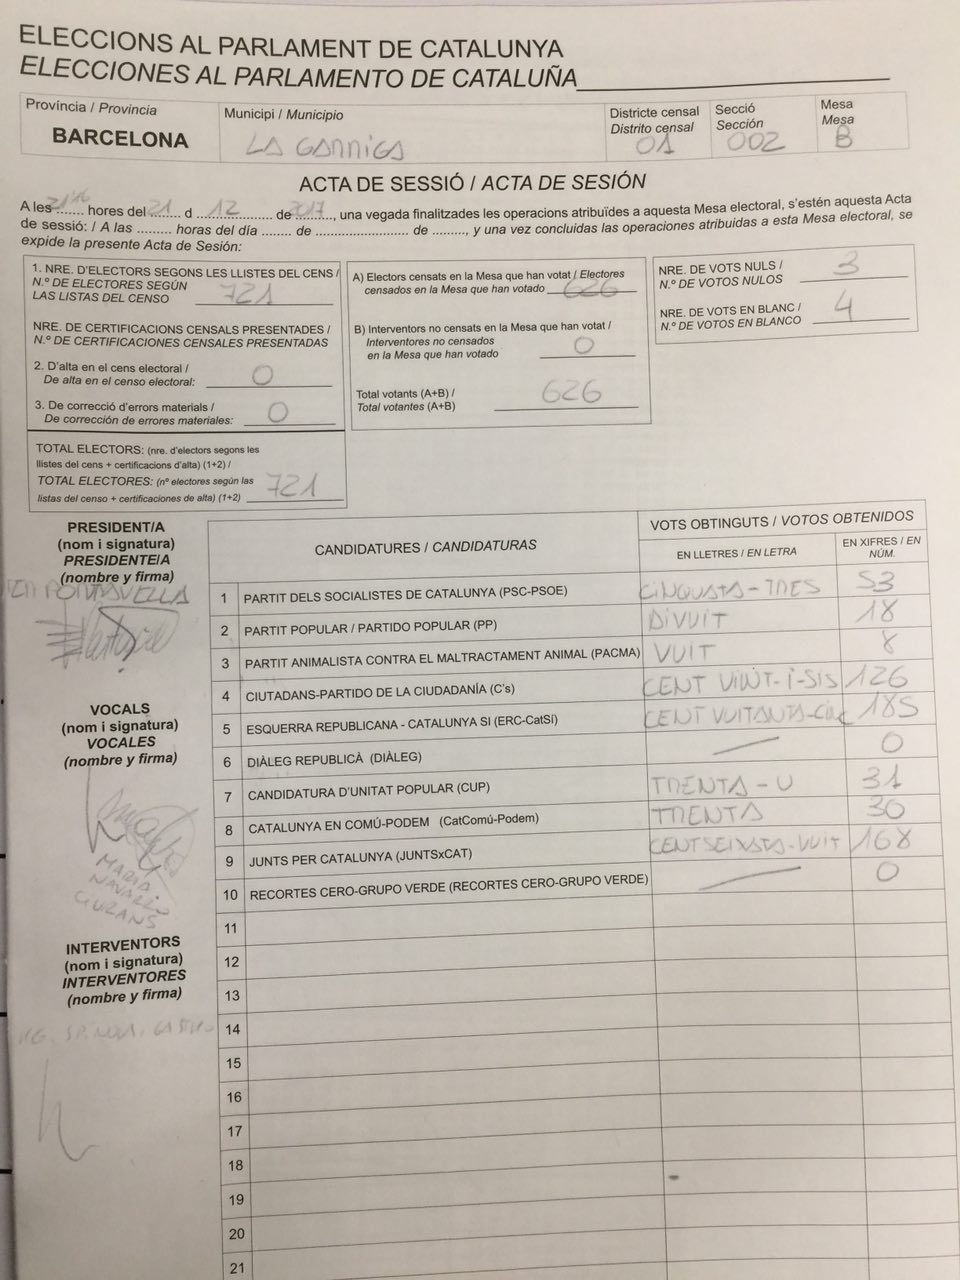 ELECCIONS AL PARLAMENT DE CATALUNYA
ELECCIONES AL PARLAMENTO DE CATALUÑA
Província / Provincia
BARCELONA
Municipi / Municipio
LA GARRIGA
Districte censal
Distrito censal
01
Secció
Sección
002
Mesa
Mesa
B
ACTA DE SESSIÓ / ACTA DE SESIÓN
A les ....... hores del 21 d 12 de 2017, una vegada finalitzades les operacions atribuïdes a aquesta Mesa electoral, s'estén aquesta Acta
de sessió: / A las ......... horas del día ........ de ........................ de ........., y una vez concluidas las operaciones atribuidas a esta Mesa electoral, se
expide la presente Acta de Sesión:
1. NRE. D'ELECTORS SEGONS LES LLISTES DEL CENS /
N.º DE ELECTORES SEGÚN
LAS LISTAS DEL CENSO 721
NRE. DE CERTIFICACIONS CENSALS PRESENTADES /
N.º DE CERTIFICACIONES CENSALES PRESENTADAS
2. D'alta en el cens electoral /
De alta en el censo electoral: 0
3. De correcció d'errors materials /
De corrección de errores materiales: 0
TOTAL ELECTORS: (nre. d'electors segons les
llistes del cens + certificacions d'alta) (1+2) /
TOTAL ELECTORES: (nº electores según las
listas del censo + certificaciones de alta) (1+2) 721
A) Electors censats en la Mesa que han votat / Electores
censados en la Mesa que han votado 626
B) Interventors no censats en la Mesa que han votat /
Interventores no censados
en la Mesa que han votado 0
Total votants (A+B) /
Total votantes (A+B) 626
NRE. DE VOTS NULS /
N.º DE VOTOS NULOS 3
NRE. DE VOTS EN BLANC /
N.º DE VOTOS EN BLANCO 4
PRESIDENT/A
(nom i signatura)
PRESIDENTE/A
(nombre y firma)
VOCALS
(nom i signatura)
VOCALES
(nombre y firma)
MARIA
NAVARRO
INTERVENTORS
(nom i signatura)
INTERVENTORES
(nombre y firma)
CANDIDATURES / CANDIDATURAS
VOTS OBTINGUTS / VOTOS OBTENIDOS
EN LLETRES / EN LETRA
EN XIFRES / EN
NÚM.
1 PARTIT DELS SOCIALISTES DE CATALUNYA (PSC-PSOE) CINQUSTA-TRES 53
2 PARTIT POPULAR / PARTIDO POPULAR (PP) DIVUIT 18
3 PARTIT ANIMALISTA CONTRA EL MALTRACTAMENT ANIMAL (PACMA) VUIT 8
4 CIUTADANS-PARTIDO DE LA CIUDADANÍA (C's) CENT VINT-I-SIS 126
5 ESQUERRA REPUBLICANA - CATALUNYA SI (ERC-CatSí) CENT VUITANTA-CINC 185
6 DIÀLEG REPUBLICÀ (DIÀLEG) 0
7 CANDIDATURA D'UNITAT POPULAR (CUP) TRENTA-U 31
8 CATALUNYA EN COMÚ-PODEM (CatComú-Podem) TRENTA 30
9 JUNTS PER CATALUNYA (JUNTSxCAT) CENT SEIXSTA-VUIT 168
10 RECORTES CERO-GRUPO VERDE (RECORTES CERO-GRUPO VERDE) 0
11
12
13
14
15
16
17
18
19
20
21